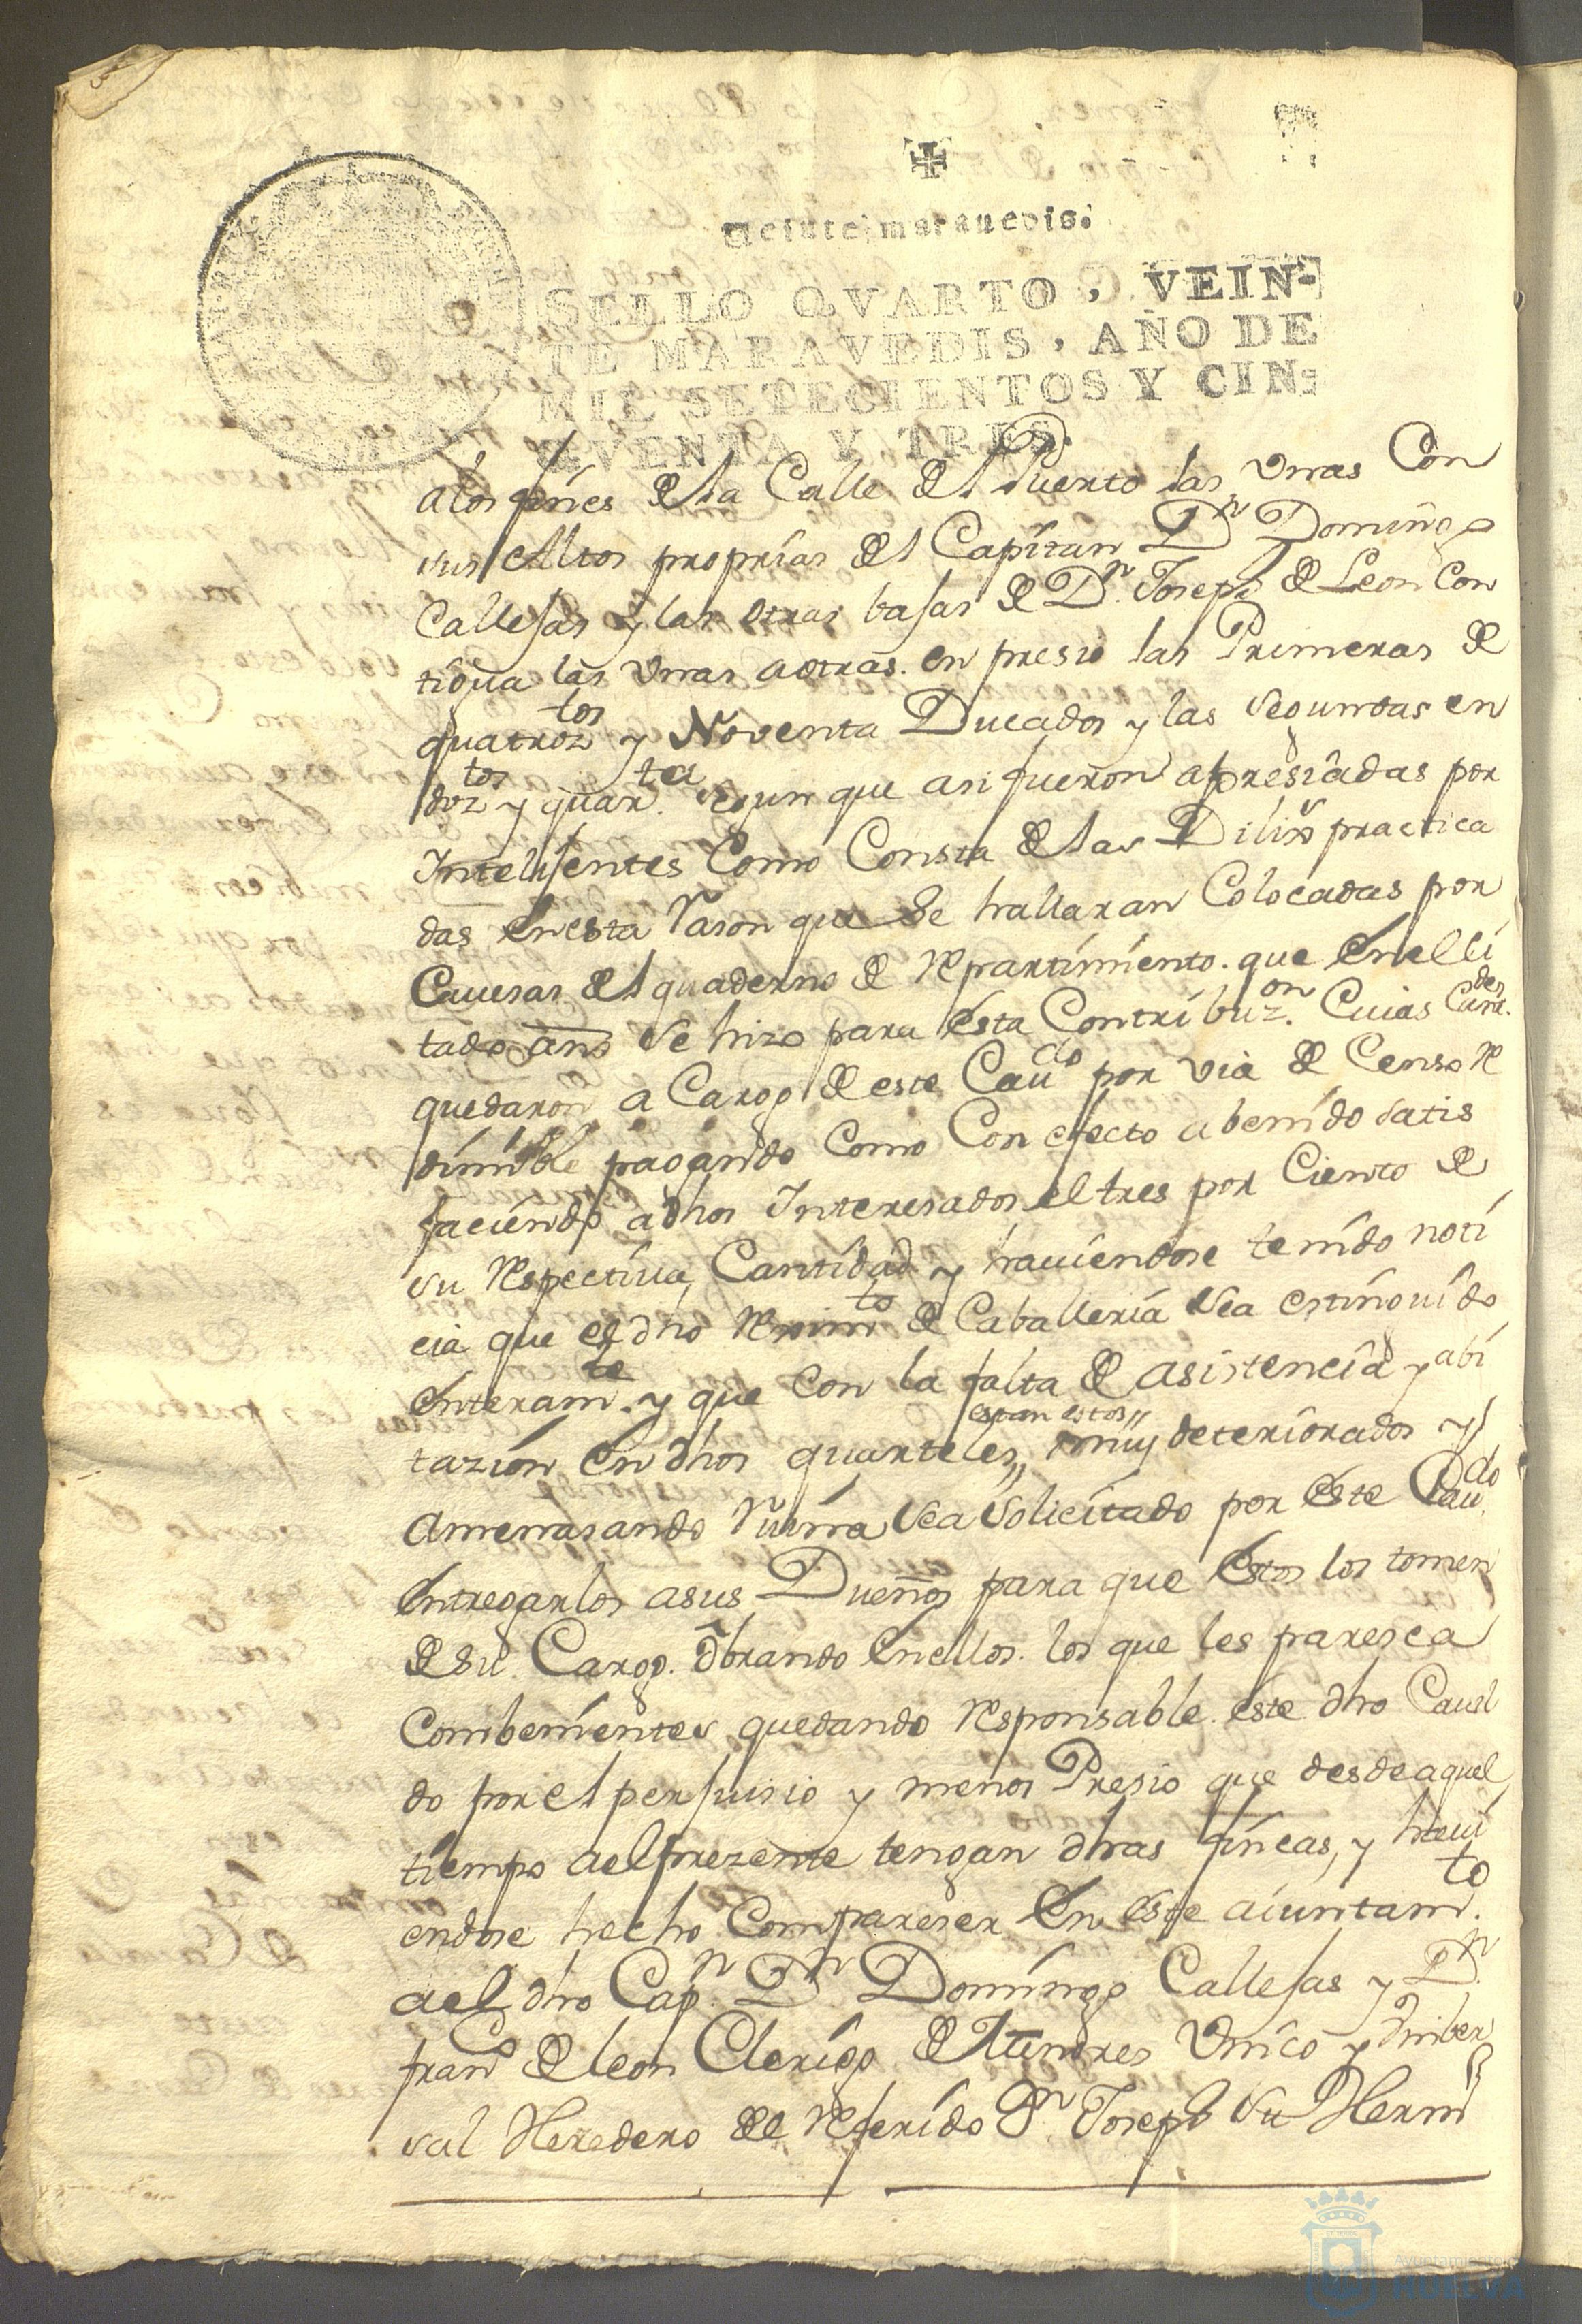 Veinte maravedis.
SELLO QVARTO, VEIN-
TE MARAVEDIS, AÑO DE
MIL SETECIENTOS Y CIN-
QVENTA Y TRES.
a los fines de la Calle del Puerto las Vnas Con
sus Altos proprias del Capitan Dn Domingo
Callejas y las otras bajas de Dn Joseph de Leon Con
tigua las Vnas a otras. en presio las Primeras de
quatroztos y Noventa Ducados y las segundas en
doztos y quarta. segun que asi fueron apresiadas por
Intelijentes Como Consta de las Dilixs practica
das En esta Rason que se hallaran Colocadas por
Cauesas del quaderno de repartimiento. que En el ci
tado año se hizo para esta Contribuzon. Cuias Cantdes
quedaron a Cargo de este Caudo por via de Censo re
dimible pagando Como Con efecto a benido satis
faciendo a dhos Interesados el tres por Ciento de
su respectiua Cantidad y hauiendose tenido noti
cia que el dho reximto de Caballeria sea estinguido
Enteramte. y que con la falta de asistencia y abi
tazion En dhos quarteles,, estan estos,, muy deteriorados y
Amenasando Ruina sea solicitado por este Caudo
Entregarlos a sus Dueños para que Estos los tomen
de su Cargo. obrando En ellos. los que les paresca
Combenientes quedando responsable este dho Cauil
do por el perjuisio y menos Presio que desde aquel
tiempo a el prezente tengan dhas fincas, y haui
endose hecho Compareser En este aiuntamto.
a el dho Capn Dn Domingo Callejas y Dn
franco de leon Clerigo de Menores Vnico y Vniber
sal Heredero de el referido Dn Joseph su Hermo
Ayuntamiento de
HUELVA